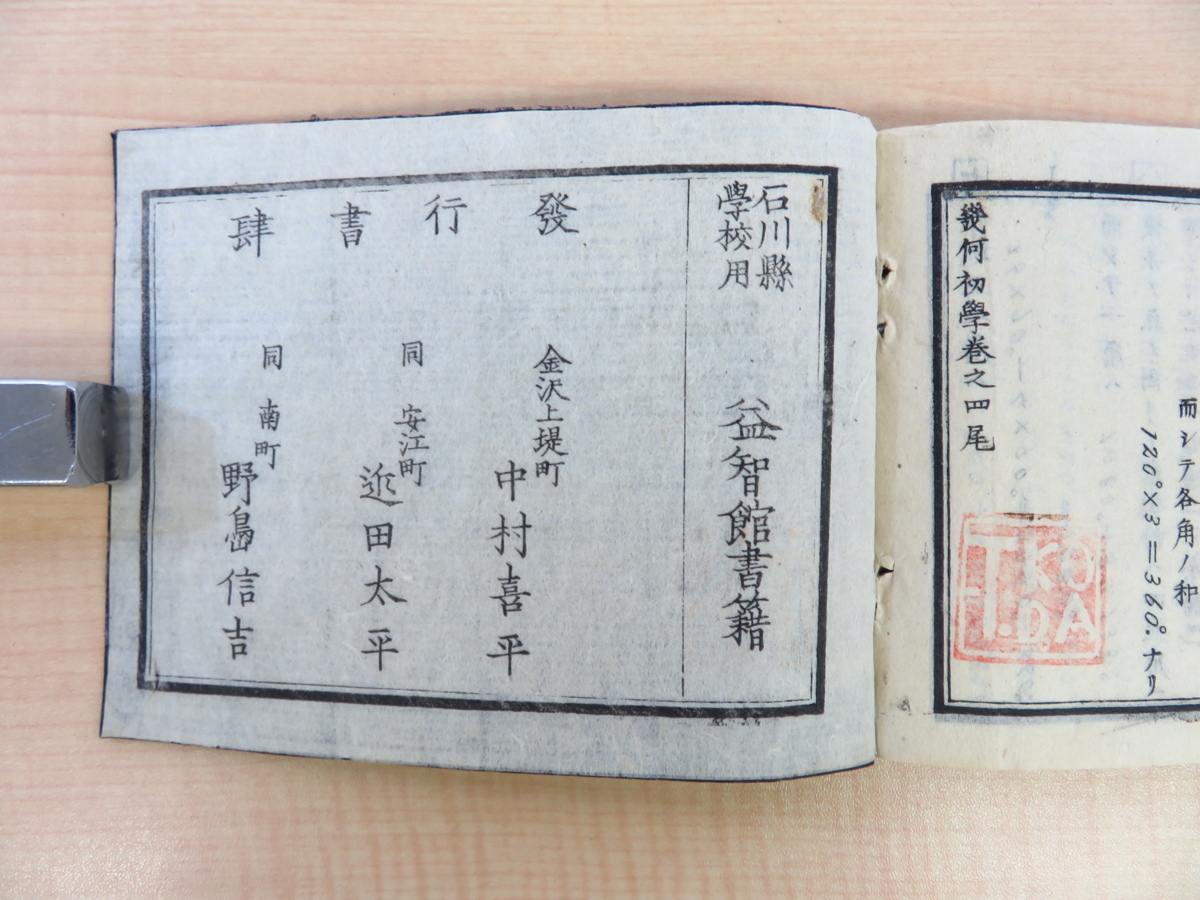 而シテ各角ノ和
120°×3=360°.ナリ
幾何初學巻之四尾
T.KODA
石川縣
學校用
益智館書籍
發行書肆
金沢上堤町
中村喜平
同 安江町
近田太平
同 南町
野島信吉